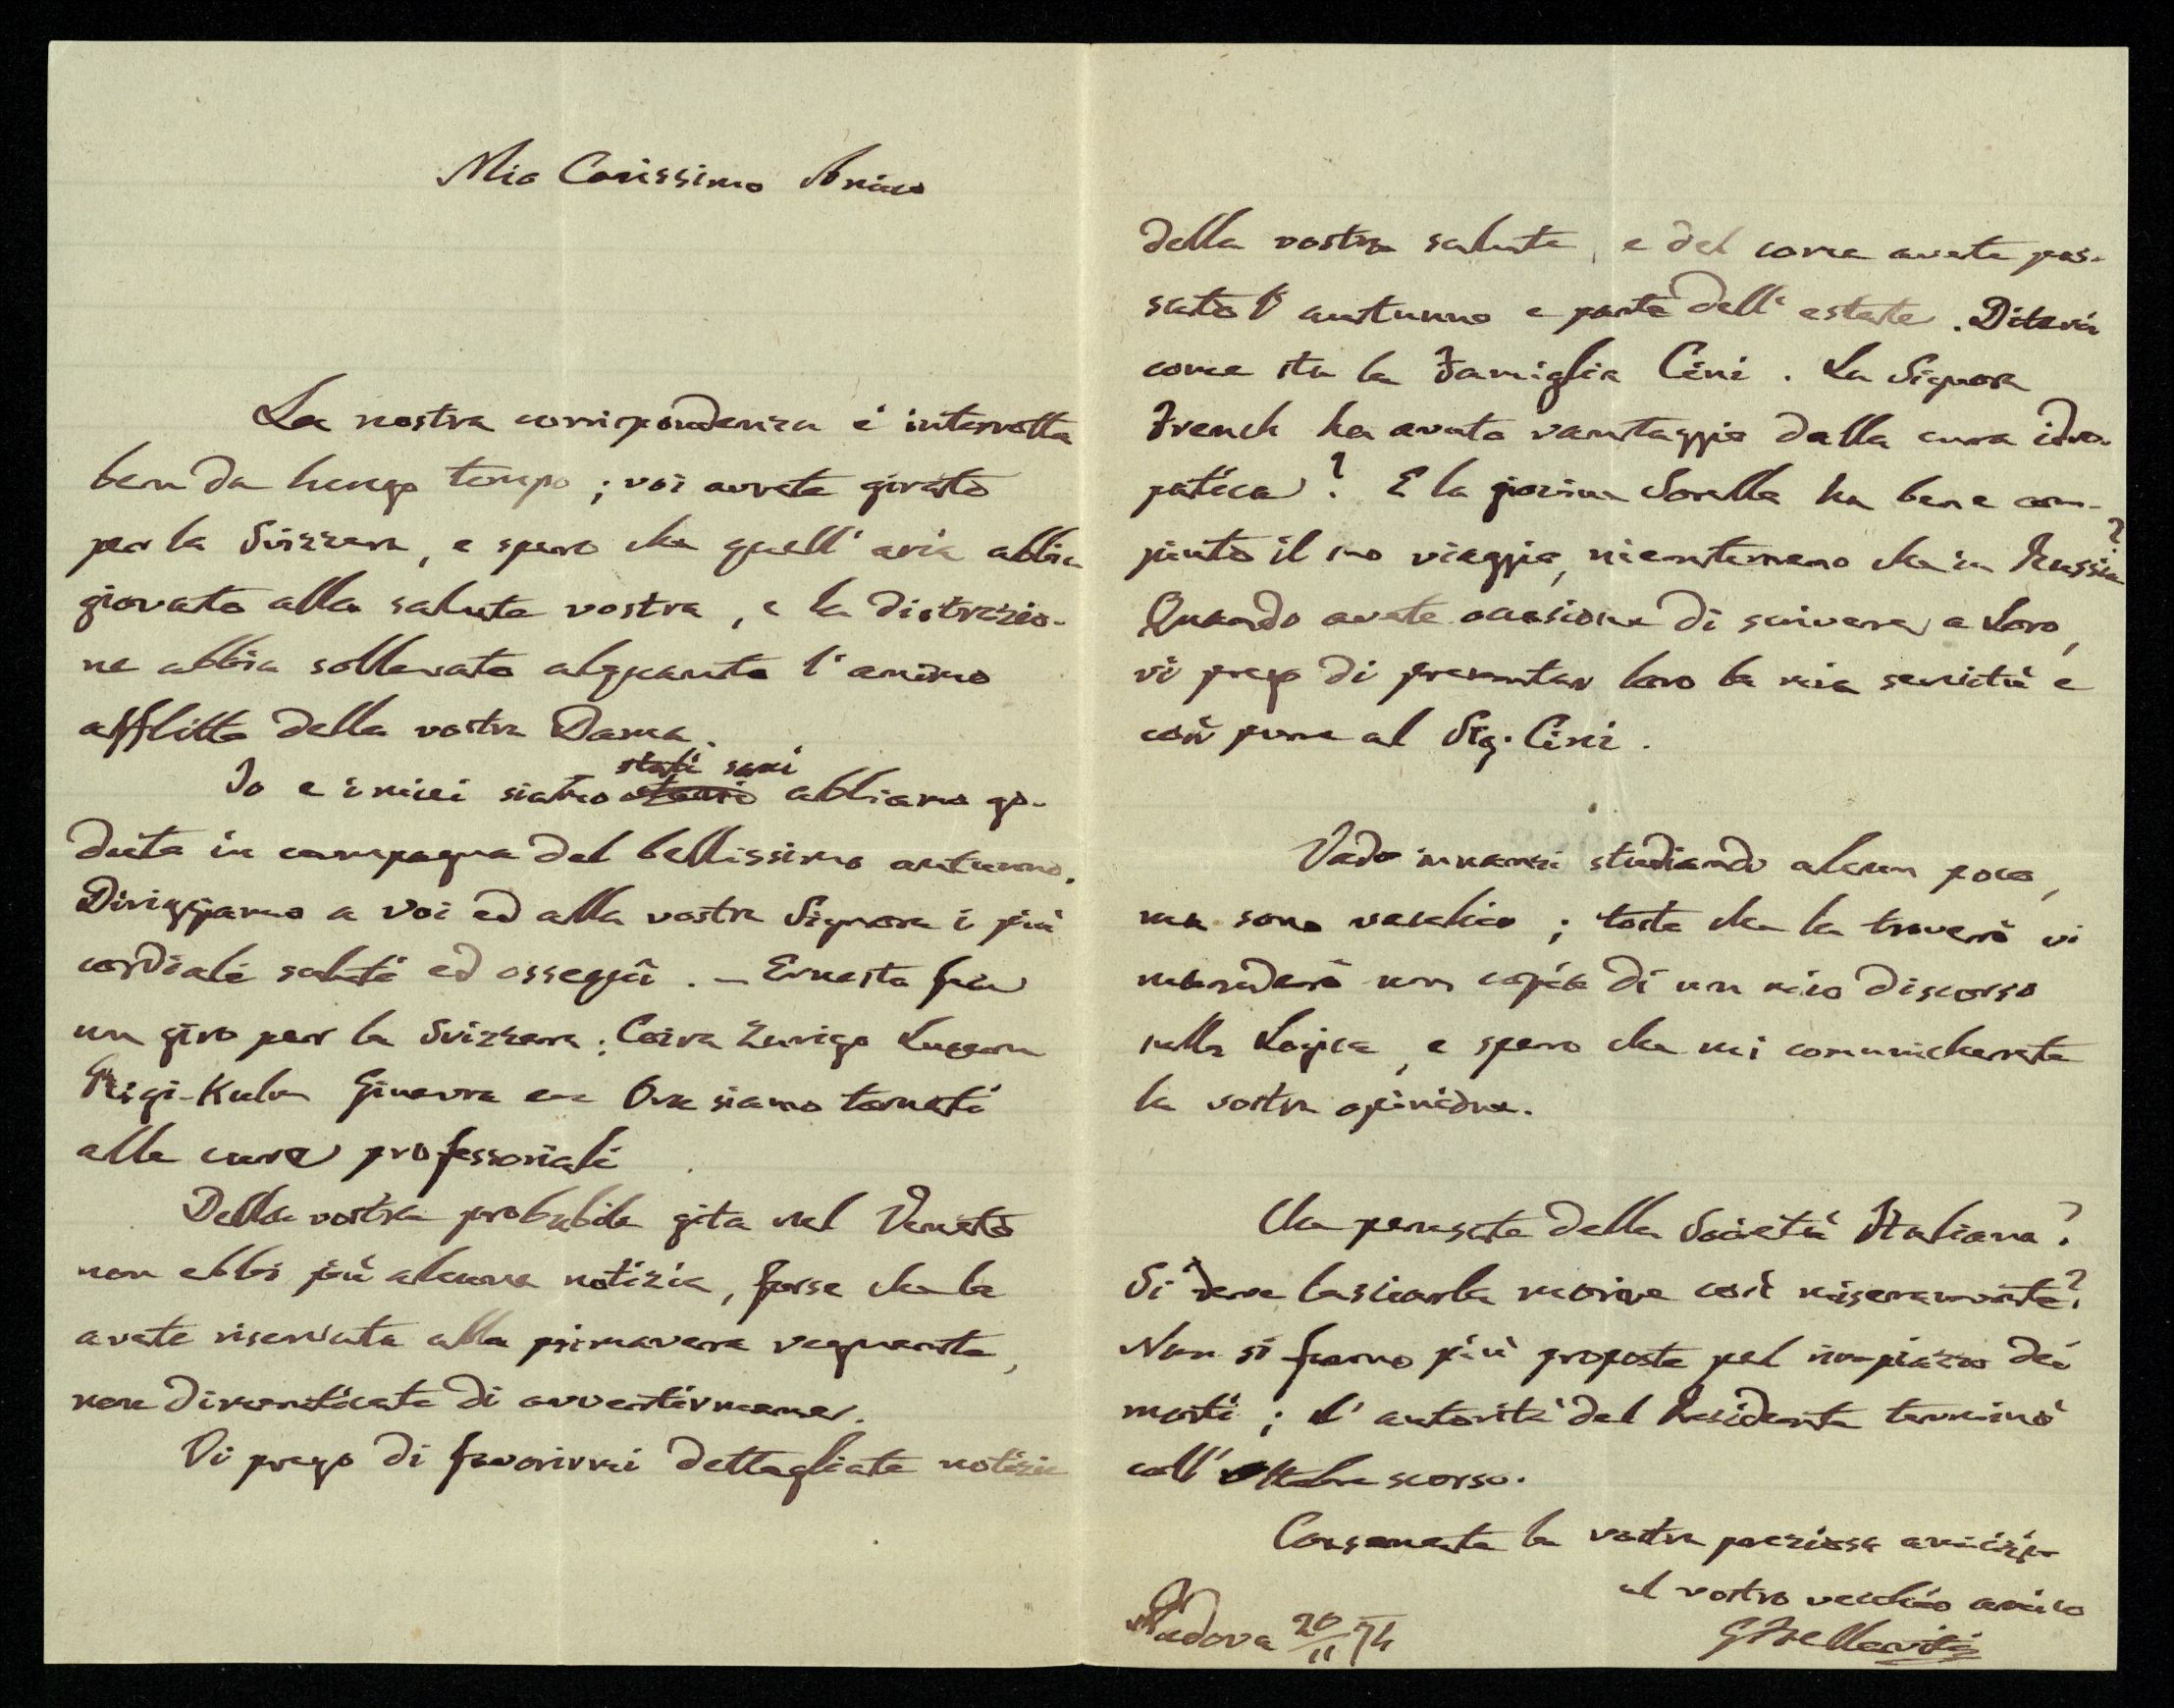 Mio Carissimo Amico
La nostra corrispondenza è interrotta
ben da lungo tempo; voi avrete girato
per la Svizzera, e spero che quell'aria abbia
giovato alla salute vostra, e la distrazio-
ne abbia sollevato alquanto l'animo
afflitto della vostra Dama.
Io e i miei siamo stati sani abbiamo go-
duto in campagna del bellissimo autunno.
Diriggiamo a voi ed alla vostra Signora i più
cordiali saluti ed osseqii. — Ernesto fece
un giro per la Svizzera: Coira Zurigo Lucerna
Rigi-Kulm Ginevra ec Ora siamo tornati
alle cure professoriali
Della vostra probabile gita nel Veneto
non ebbi più alcuna notizia, forse che la
avete riservata alla primavera vegnente,
non dimenticate di avvertirmene.
Vi prego di favorirmi dettagliate notizie
della vostra salute, e del come avete pas-
sato l'autunno e parte dell'estate. Ditemi
come sta la Famiglia Cini. La Signora
French ha avuto vantaggio dalla cura idro-
patica? E la giovine Sorella ha bene com-
piuto il suo viaggio, nientemeno che in Russia?
Quando avete occasione di scrivere a Loro,
vi prego di presentar loro la mia servitù e
così pure al Sig. Cini.
Vado innanzi studiando alcun poco,
ma sono vecchio; tosto che la troverò vi
manderò una copia di un mio discorso
sulla Logica, e spero che mi comunicherete
la vostra opinione.
Che pensate della Società Italiana?
Si deve lasciarla morire così miseramente?
Non si fanno più proposte pel rimpiazzo dei
morti; l'autorità del Presidente terminò
coll'ottobre scorso.
Conservate la vostra preziosa amicizia
al vostro vecchio amico
Padova 20/11 74 GBellavitis